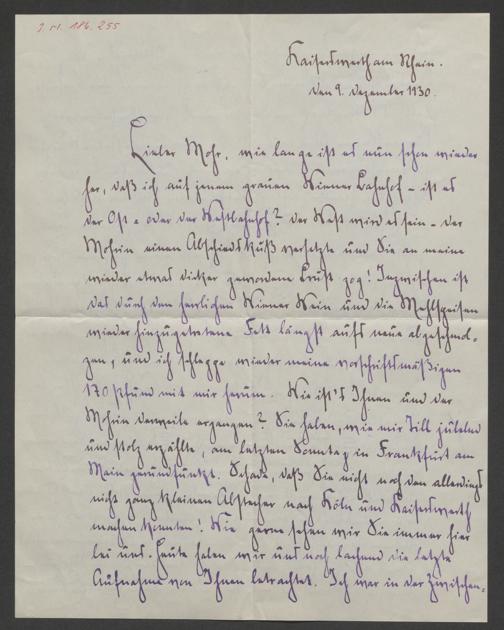 J. N. 186.255
Kaiserswerth am Rhein.
den 9. Dezember 1930.
Lieber Mohr, wie lange ist es nun schon wieder
her, daß ich auf jenem grauen Wiener Bahnhof – ist es
der Ost- oder der Westbahnhof? der West wird es sein – der
Mohrin einen Abschiedskuß versetzte und Sie an meine
wieder etwas dicker gewordene Brust zog! Inzwischen ist
das durch den herrlichen Wiener Wein und die Mehlspeisen
wieder hinzugetretene Fett längst aufs neue abgeschmol-
zen, und ich schleppe wieder meine vorschriftsmäßigen
170 Pfund mit mir herum. Wie ist's Ihnen und der
Mohrin derweile ergangen? Sie haben, wie mir Till jubelnd
und stolz erzählte, am letzten Sonntag in Frankfurt am
Main gerundfunkt. Schade, daß Sie nicht noch den allerdings
nicht ganz kleinen Abstecher nach Köln und Kaiserswerth
machen konnten! Wie gerne sehen wir Sie immer hier
bei uns. Heute haben wir uns noch lachend die letzte
Aufnahme von Ihnen betrachtet. Ich war in der Zwischen-